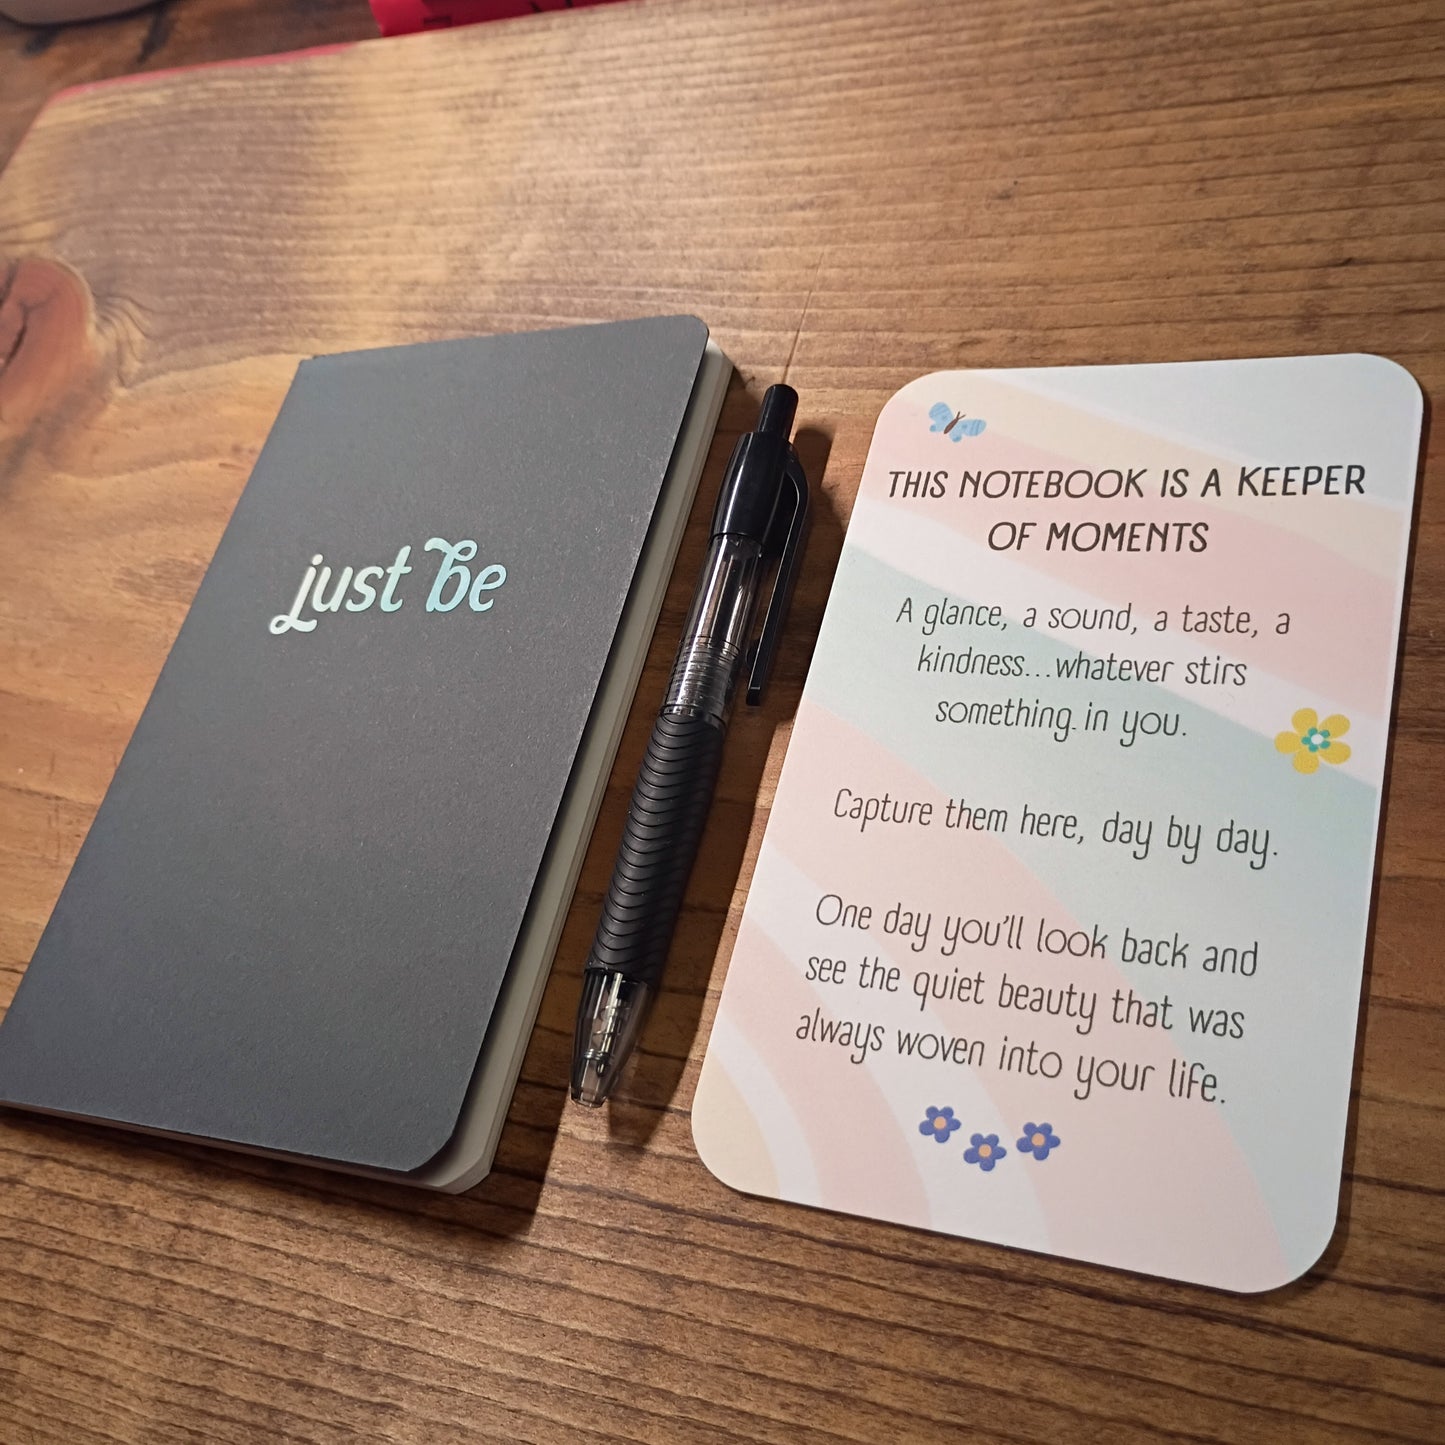 just be
THIS NOTEBOOK IS A KEEPER
OF MOMENTS
A glance, a sound, a taste, a
kindness...whatever stirs
something in you.
Capture them here, day by day.
One day you'll look back and
see the quiet beauty that was
always woven into your life.